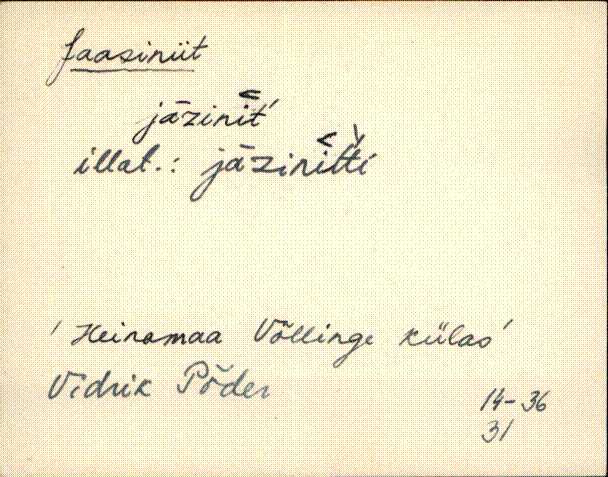 Jaasiniit
jāzinīt́
illat.: jāzinìtti
'Heinamaa Võllinge külas'
Vidrik Põder
14-36
31